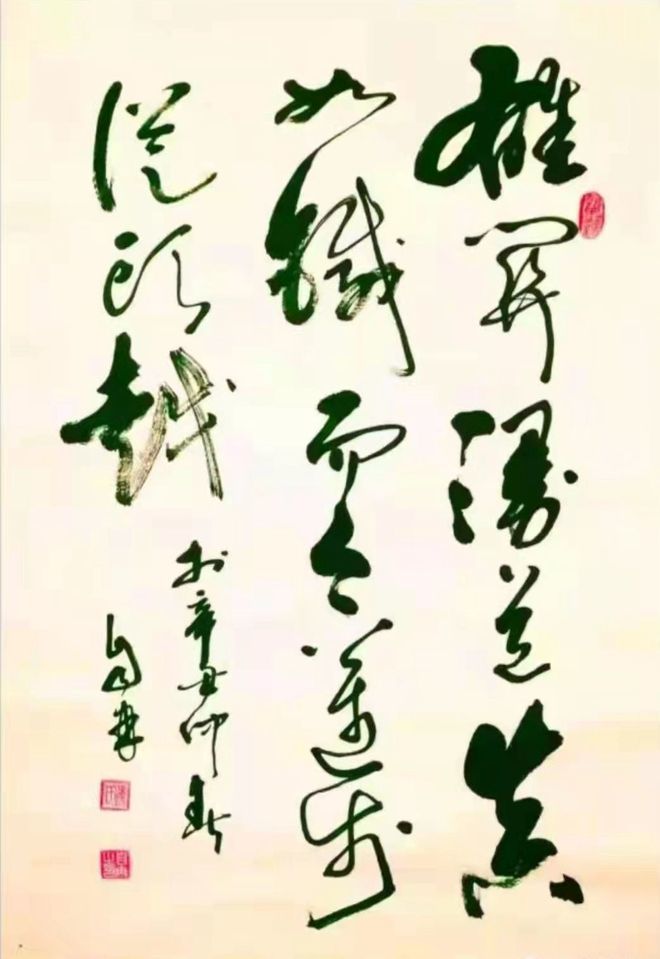 雄關漫道真
如鐵而今邁步
從頭越
於辛丑仲春